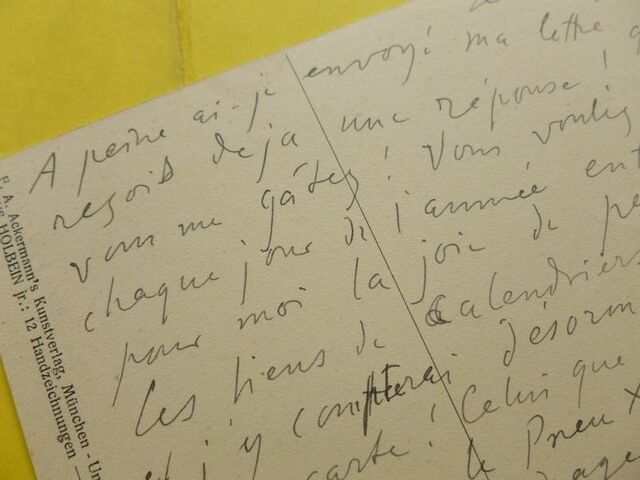 A peine ai-je envoyé ma lettre
reçois déjà une réponse!
vous me gâtez! Vous voulez
chaque jour de l'année
pour moi la joie de
les liens de Calendriers
j'y compterai désorm
carte! Celui que
le Pneu X
F. A. Ackermann's Kunstverlag, München - Un
HOLBEIN jr.: 12 Handzeichnungen